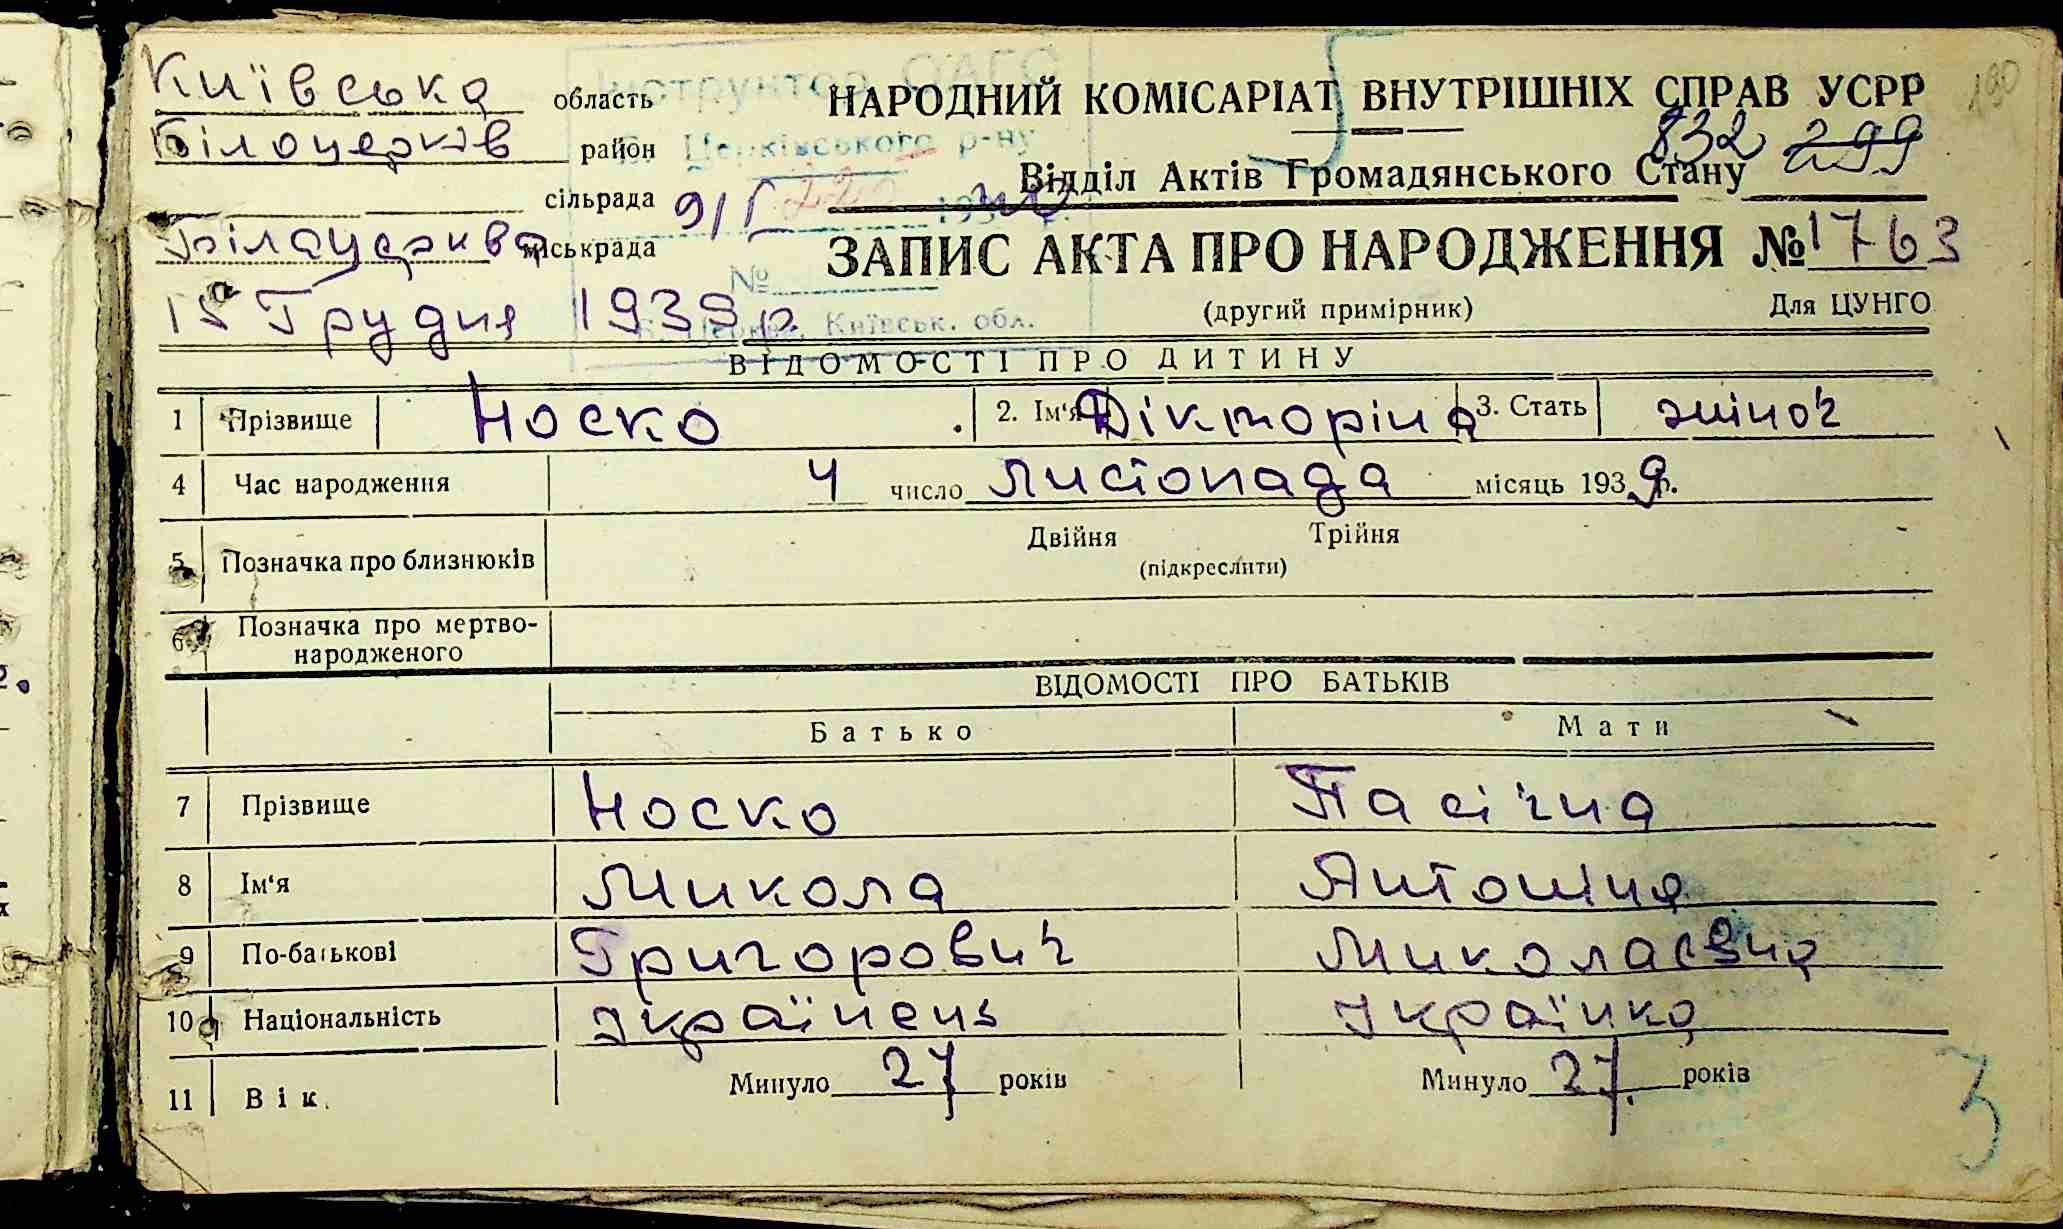 Київська область
Білоцерків район
сільрада
Білацерква міськрада
15 Грудня 1939 р.
Інструктор ОАГС
Б. Церківського р-ну
9/I 40
№
Б. Церква, Київськ. обл.
190
НАРОДНИЙ КОМІСАРІАТ ВНУТРІШНІХ СПРАВ УСРР
832 299
Відділ Актів Громадянського Стану
ЗАПИС АКТА ПРО НАРОДЖЕННЯ № 1763
(другий примірник) Для ЦУНГО
ВІДОМОСТІ ПРО ДИТИНУ
1 Прізвище Носко 2. Ім'я Вікторіна 3. Стать жіноч
4 Час народження 4 число листопада місяць 1939 р.
5 Позначка про близнюків Двійня Трійня
(підкреслити)
6 Позначка про мертво-
народженого
ВІДОМОСТІ ПРО БАТЬКІВ
Батько Мати
7 Прізвище Носко Пасічна
8 Ім'я Микола Антоніна
9 По-батькові Григорович Миколаєвна
10 Національність Українець Українка
11 Вік. Минуло 27 років Минуло 27 років
3